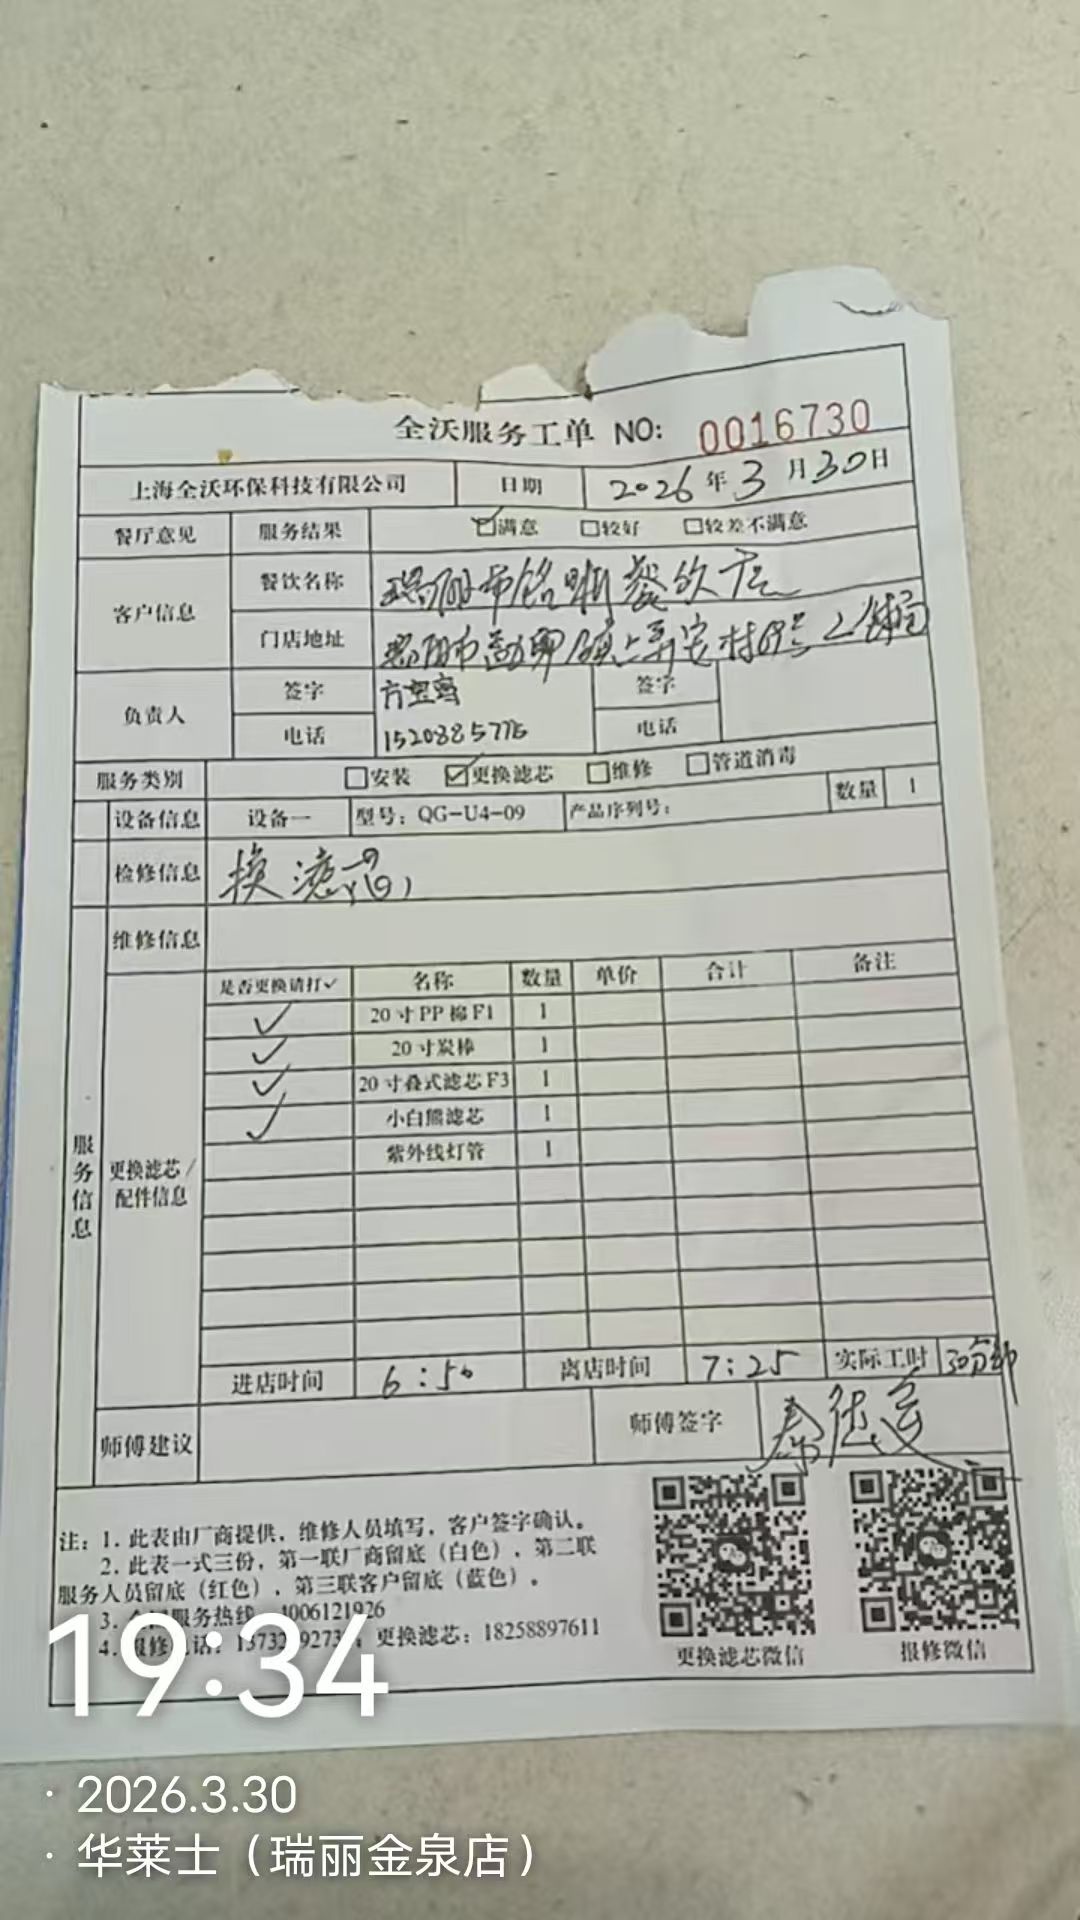 全沃服务工单 NO: 0016730
上海全沃环保科技有限公司 日期 2026年3月30日
餐厅意见 服务结果 ☑满意 □较好 □较差不满意
客户信息 餐饮名称 瑞丽市铭晰餐饮店
门店地址 瑞丽市勐卯镇上弄安村69号2铺面
负责人 签字 签字
电话 电话
服务类别 □安装 ☑更换滤芯 □维修 □管道消毒
设备信息 设备一 型号：QG-U4-09 产品序列号： 数量 1
检修信息 换滤芯
维修信息
服务信息
更换滤芯/配件信息
是否更换请打✓ 名称 数量 单价 合计 备注
✓ 20寸PP棉F1 1
✓ 20寸炭棒 1
✓ 20寸叠式滤芯F3 1
✓ 小白熊滤芯 1
紫外线灯管 1
进店时间 6:50 离店时间 7:25 实际工时 30分钟
师傅建议 师傅签字
注：1. 此表由厂商提供，维修人员填写，客户签字确认。
2. 此表一式三份，第一联厂商留底（白色），第二联
服务人员留底（红色），第三联客户留底（蓝色）。
3. 服务热线 4006121926
4. 报修电话： 更换滤芯：18258897611
更换滤芯微信 报修微信
19:34
· 2026.3.30
· 华莱士（瑞丽金泉店）